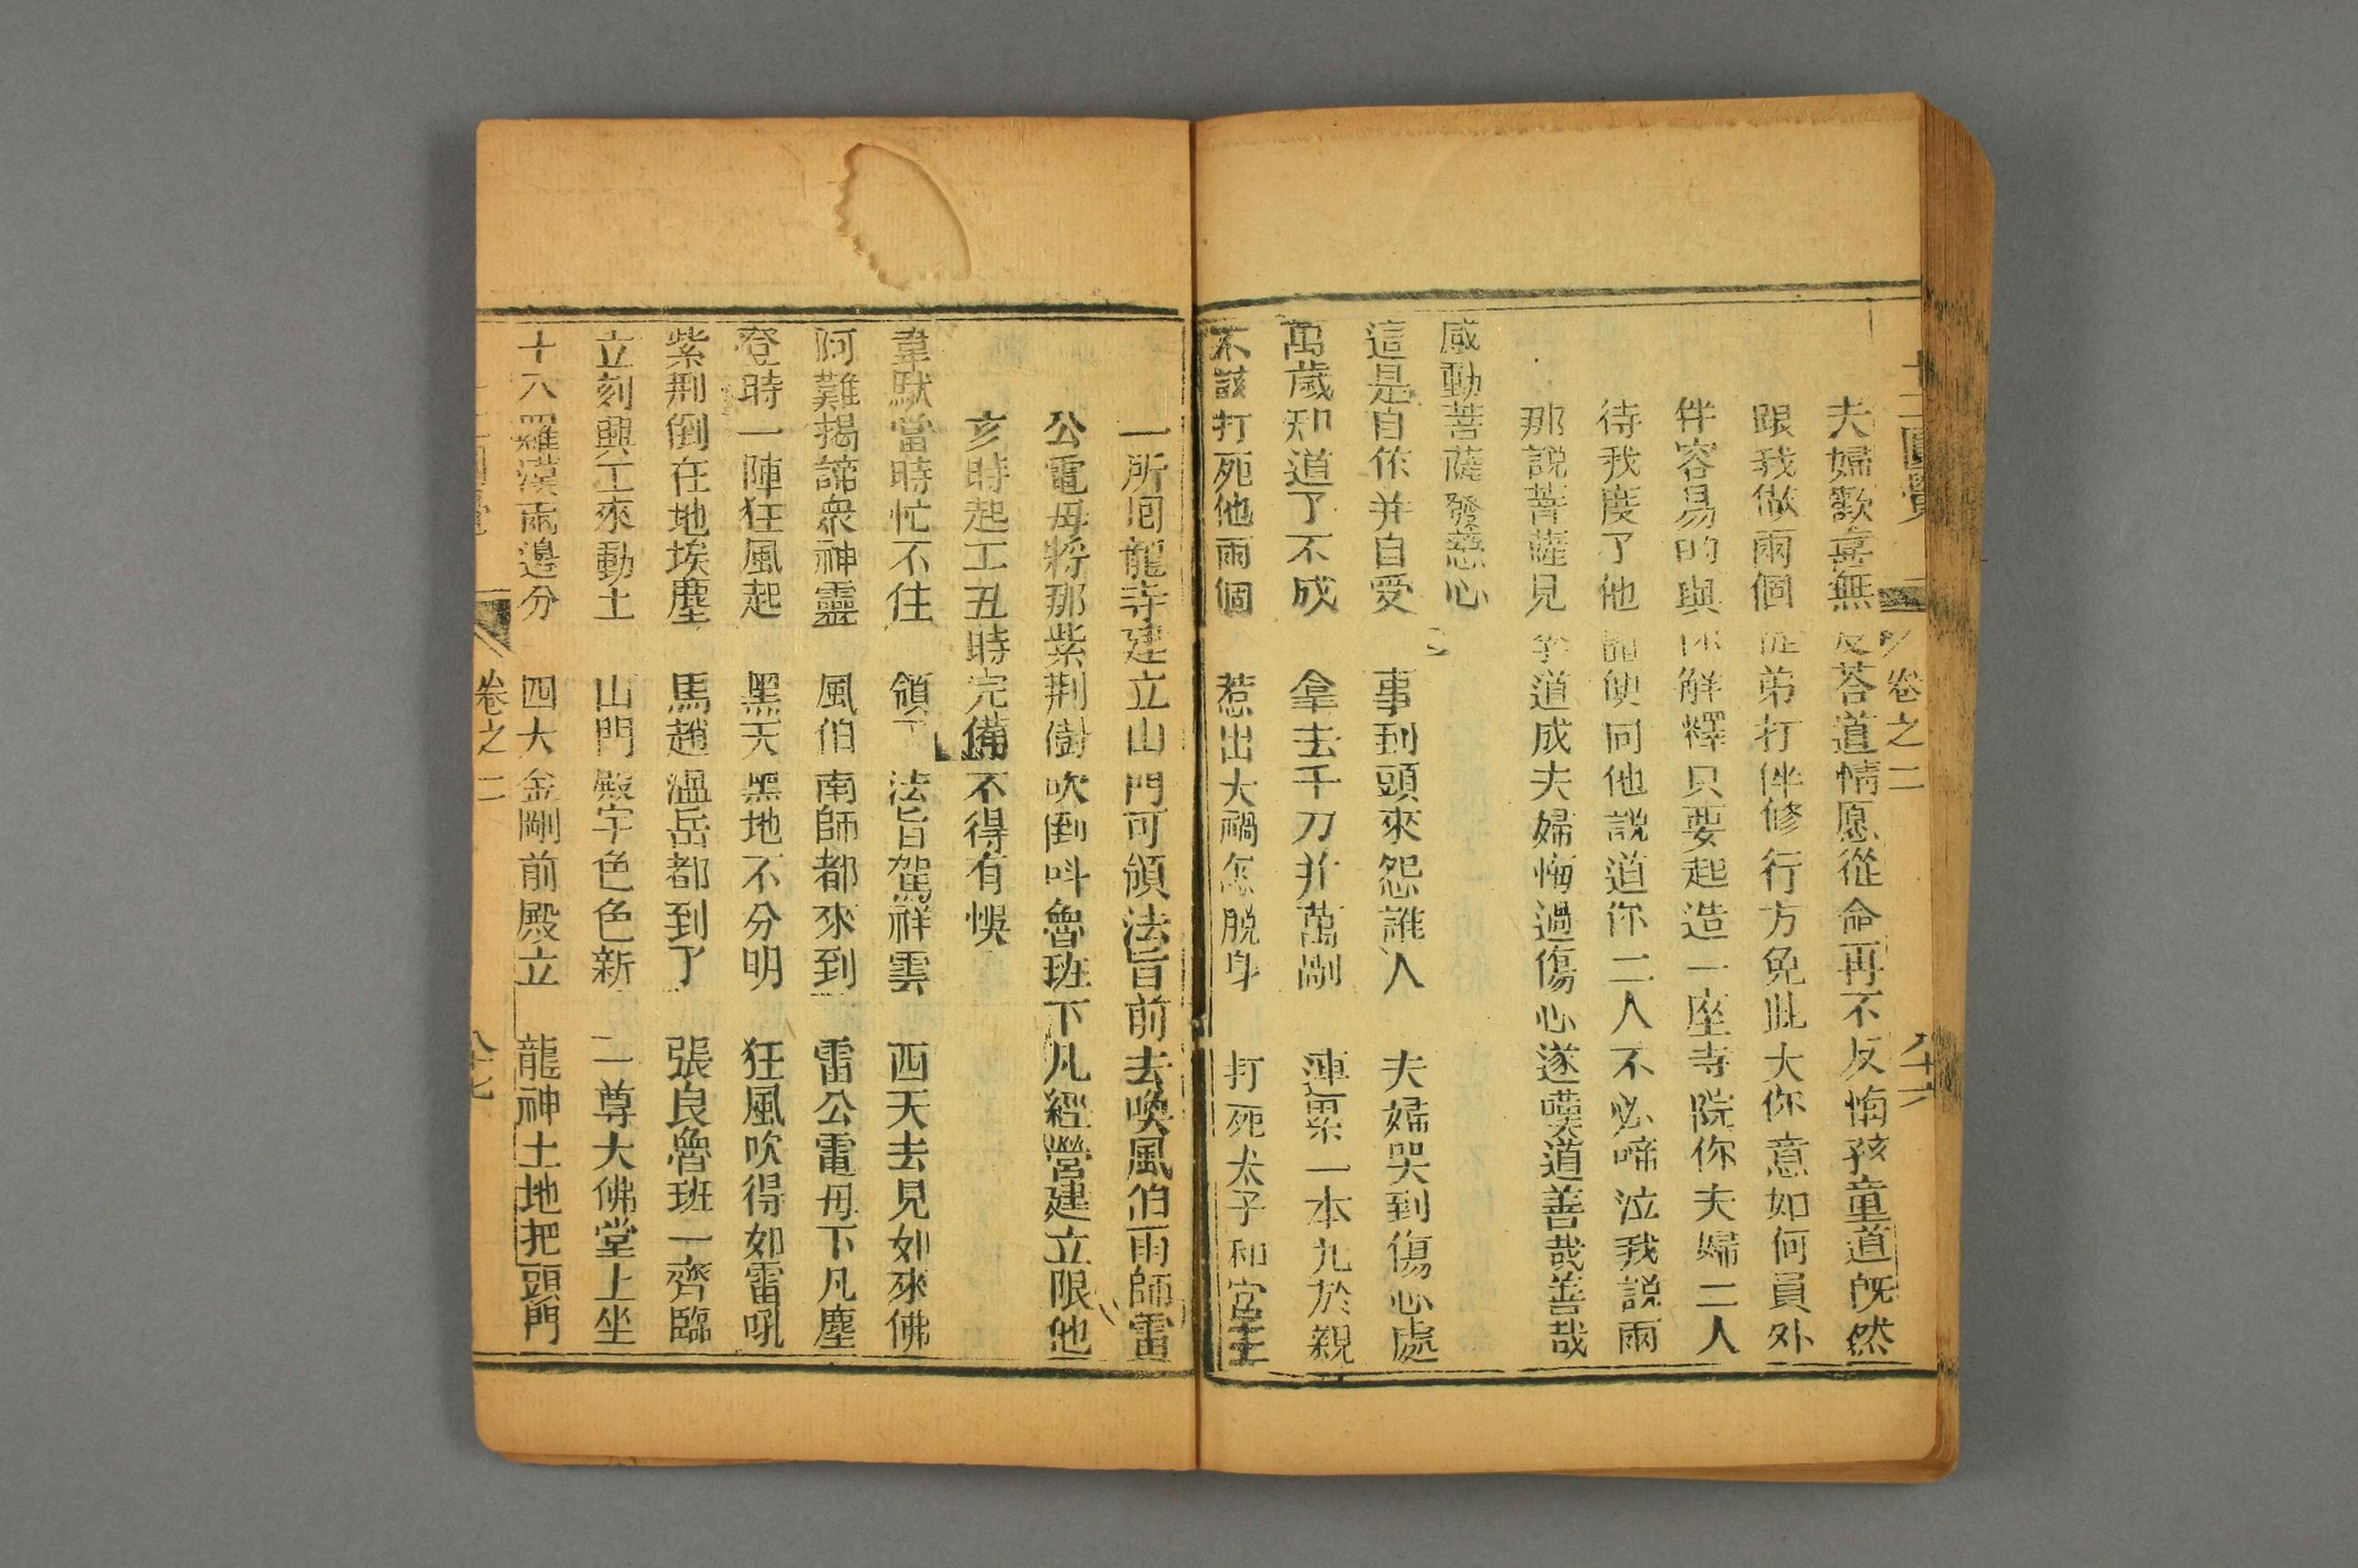 不該打死他兩個 惹出大禍怎脫身 打死太子和宮主
萬歲知道了不成 拿去千刀并萬剮 連累一本九於親
這是自作并自受 事到頭來怨誰人 夫婦哭到傷心處
感動菩薩發慈心
那説菩薩見李道成夫婦悔過傷心遂嘆道善哉善哉
待我度了他師便同他説道你二人不必啼泣我説兩
伴容易的與你解釋只要起造一座寺院你夫婦二人
跟我做兩個徒弟打伴修行方免此大你意如何員外
夫婦歡喜無及荅道情愿從命再不反悔孩童道旣然
十二圓覺 卷之二 八十六
一所囘龍寺建立山門可頒法旨前去喚風伯雨師雷
公電母將那紫荆樹吹倒呌魯班下凡經營建立限他
亥時起工丑時完備不得有悞
韋馱當時忙不住 領了法旨駕祥雲 西天去見如來佛
阿難揭諦衆神靈 風伯南師都來到 雷公電母下凡塵
登時一陣狂風起 黑天黑地不分明 狂風吹得如雷吼
紫荆倒在地埃塵 馬趙温岳都到了 張良魯班一齊臨
立刻興工來動土 山門殿宇色色新 二尊大佛堂上坐
十八羅漢兩邊分 四大金剛前殿立 龍神土地把頭門
卷之二 八十七